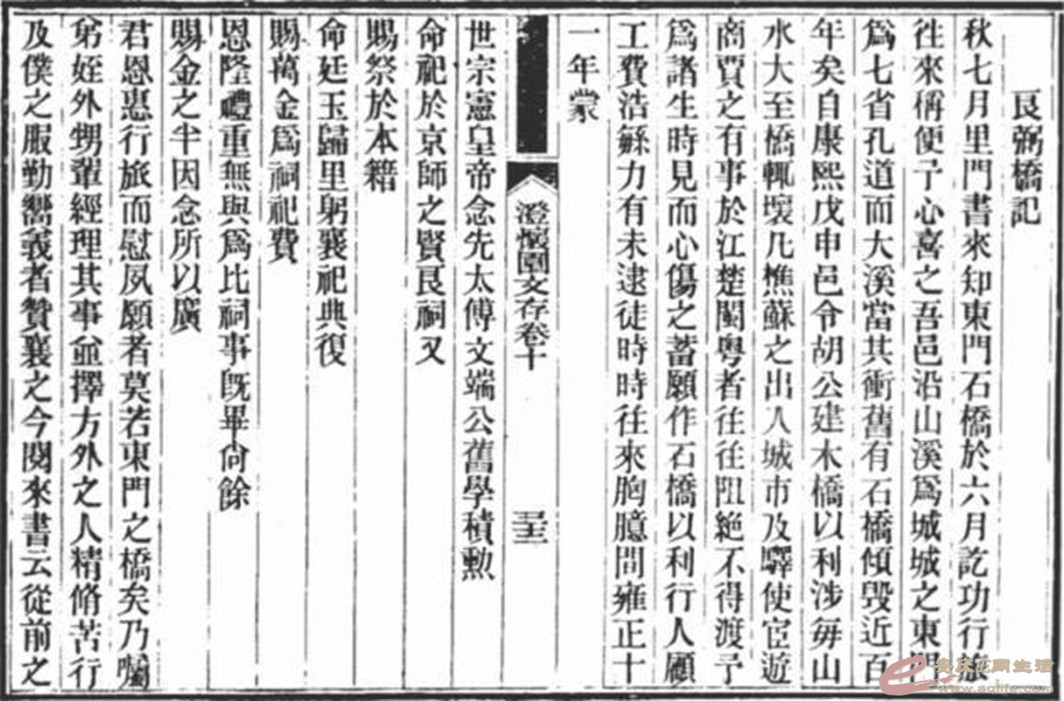 良弼橋記
秋七月里門書來知東門石橋於六月訖功行旅
徃來稱便予心喜之吾邑沿山溪爲城城之東門
爲七省孔道而大溪當其衝舊有石橋傾毀近百
年矣自康熙戊申邑令胡公建木橋以利涉每山
水大至橋輒壞凡樵蘇之出入城市及驛使宦遊
商賈之有事於江楚閩粵者往往阻絕不得渡予
爲諸生時見而心傷之蓄願作石橋以利行人顧
工費浩緐力有未逮徒時時往來胸臆間雍正十
一年蒙
澄懷園文存卷十
世宗憲皇帝念先太傅文端公舊學積勲
命祀於京師之賢良祠又
賜祭於本籍
命廷玉歸里躬襄祀典復
賜萬金爲祠祀費
恩隆禮重無與爲比祠事既畢尙餘
賜金之半因念所以廣
君恩惠行旅而慰夙願者莫若東門之橋矣乃囑
弟姪外甥輩經理其事並擇方外之人精脩苦行
及僕之服勤嚮義者贊襄之今閱來書云從前之
www.aqlife.com